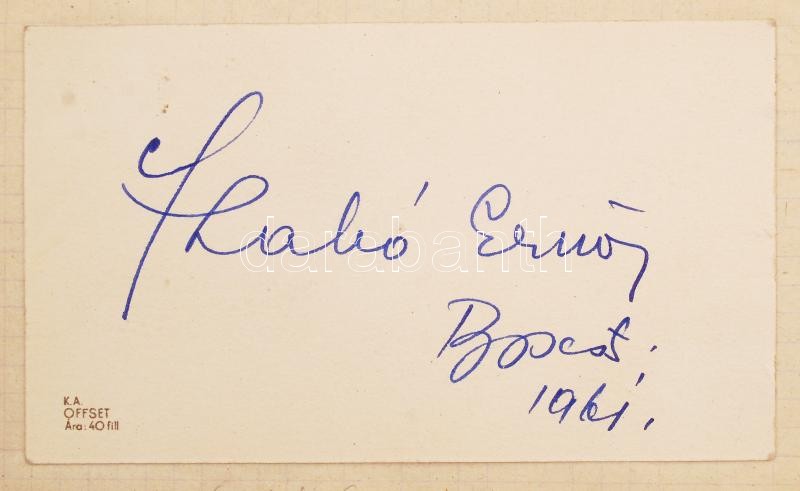 Szabó Ernő
Bpest.
1961.
darabanth
K.A.
OFFSET
Ára: 40 fill